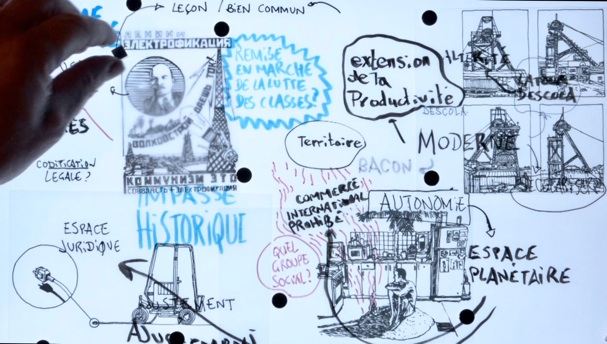 LEÇON / BIEN COMMUN
ЭЛЕКТРОФИКАЦИЯ
REMISE
EN MARCHE
DE LA LUTTE
DES CLASSES?
extension
de la
Productivité
ALTÉRITÉ
LATOUR
DESCOLA
DESCOLA
MODERNE
Territoire
BACON ?
CODIFICATION
LEGALE ?
ВОЛХОВСТРОЙ
КОММУНИЗМ ЭТО
IMPASSE
HISTORIQUE
COMMERCE
INTERNATIONAL
PROHIBÉ
AUTONOMIE
ESPACE
JURIDIQUE
QUEL
GROUPE
SOCIAL?
ESPACE
PLANÉTAIRE
AJUSTEMENT